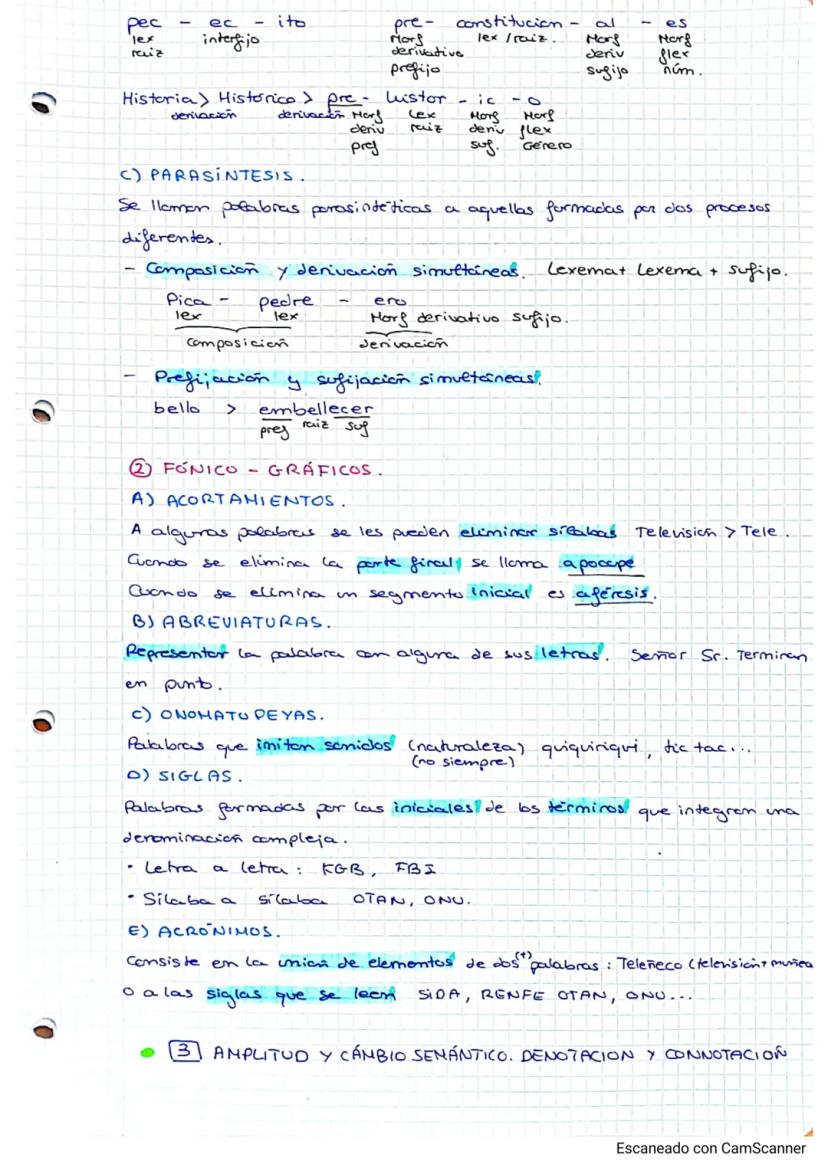 pec - ec - ito pre- constitucion - al - es
lex interfijo Morf lex / raiz. Morf Morf
raiz derivativo deriv flex
prefijo sufijo núm.
Historia > Histórico > pre- histor - ic - o
derivación derivación Morf Lex Morf Morf
deriv raiz deriv flex
pref suf. Género
C) PARASÍNTESIS.
Se llaman palabras parasintéticas a aquellas formadas por dos procesos
diferentes.
- Composición y derivación simultáneas. Lexema + Lexema + sufijo.
Pica - pedre - ero
lex lex Morf derivativo sufijo.
composición derivación
- Prefijación y sufijación simultáneas.
bello > embellecer
pref raiz suf
② FÓNICO - GRÁFICOS.
A) ACORTAMIENTOS.
A algunas palabras se les pueden eliminar sílabas Televisión > Tele.
Cuando se elimina la parte final, se llama apocope
Cuando se elimina un segmento inicial es aféresis.
B) ABREVIATURAS.
Representar la palabra con alguna de sus letras. Señor Sr. Terminan
en punto.
C) ONOMATOPEYAS.
Palabras que imitan sonidos (naturaleza) quiquiriqui, tic tac...
(no siempre)
D) SIGLAS.
Palabras formadas por las iniciales de los términos que integran una
denominación compleja.
· Letra a letra: KGB, FBI
· Sílaba a sílaba OTAN, ONU.
E) ACRÓNIMOS.
Consiste en la unión de elementos de dos(+) palabras: Teleñeco (televisión + muñeca
O a las siglas que se leen SIDA, RENFE OTAN, ONU...
3 AMPLITUD Y CÁMBIO SEMÁNTICO. DENOTACION Y CONNOTACIÓN
Escaneado con CamScanner